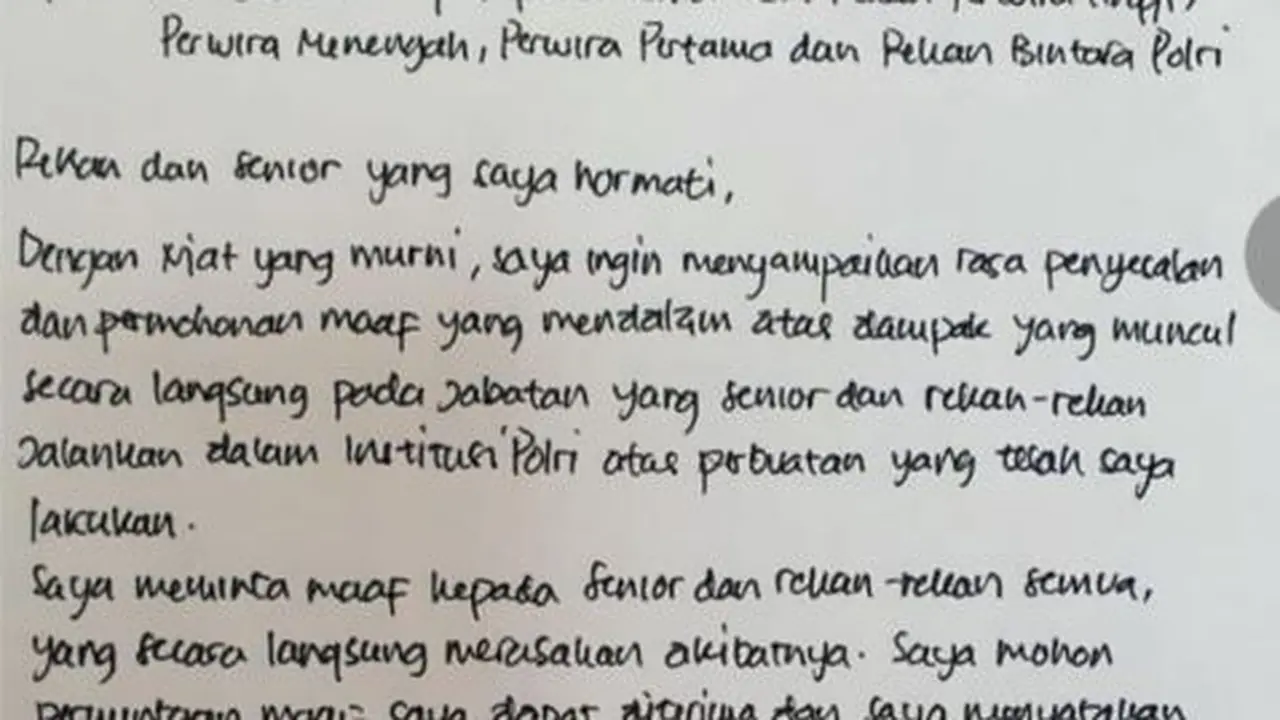 Perwira Menengah, Perwira Pertama dan Rekan Bintara Polri
Rekan dan senior yang saya hormati,
Dengan niat yang murni, saya ingin menyampaikan rasa penyesalan
dan permohonan maaf yang mendalam atas dampak yang muncul
secara langsung pada jabatan yang senior dan rekan-rekan
jalankan dalam institusi Polri atas perbuatan yang telah saya
lakukan.
Saya meminta maaf kepada senior dan rekan-rekan semua,
yang secara langsung merasakan akibatnya. Saya mohon
permintaan maaf saya dapat diterima dan saya menyatakan